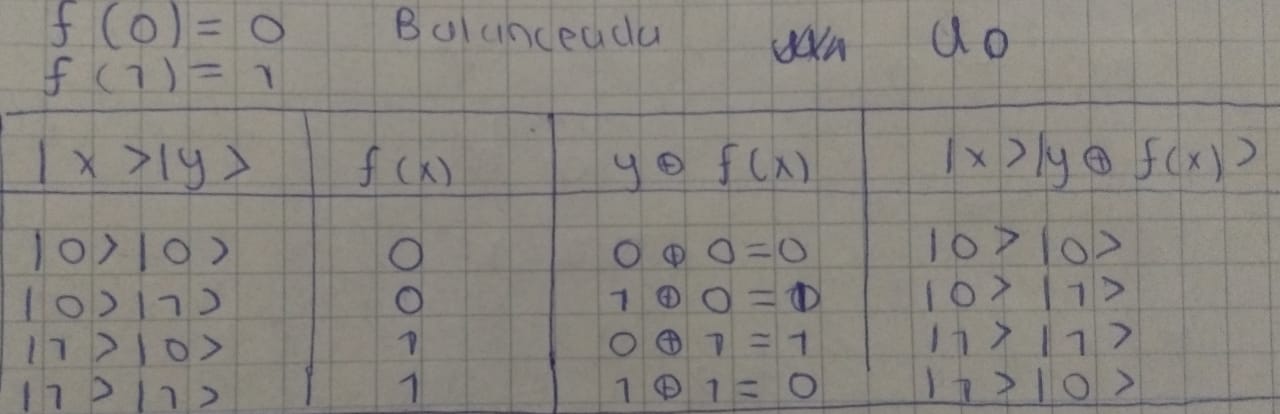 f(0) = 0 Balanceada U0
f(1) = 1
|x>|y> f(x) y ⊕ f(x) |x>|y ⊕ f(x)>
|0>|0> 0 0 ⊕ 0 = 0 |0>|0>
|0>|1> 0 1 ⊕ 0 = 1 |0>|1>
|1>|0> 1 0 ⊕ 1 = 1 |1>|1>
|1>|1> 1 1 ⊕ 1 = 0 |1>|0>